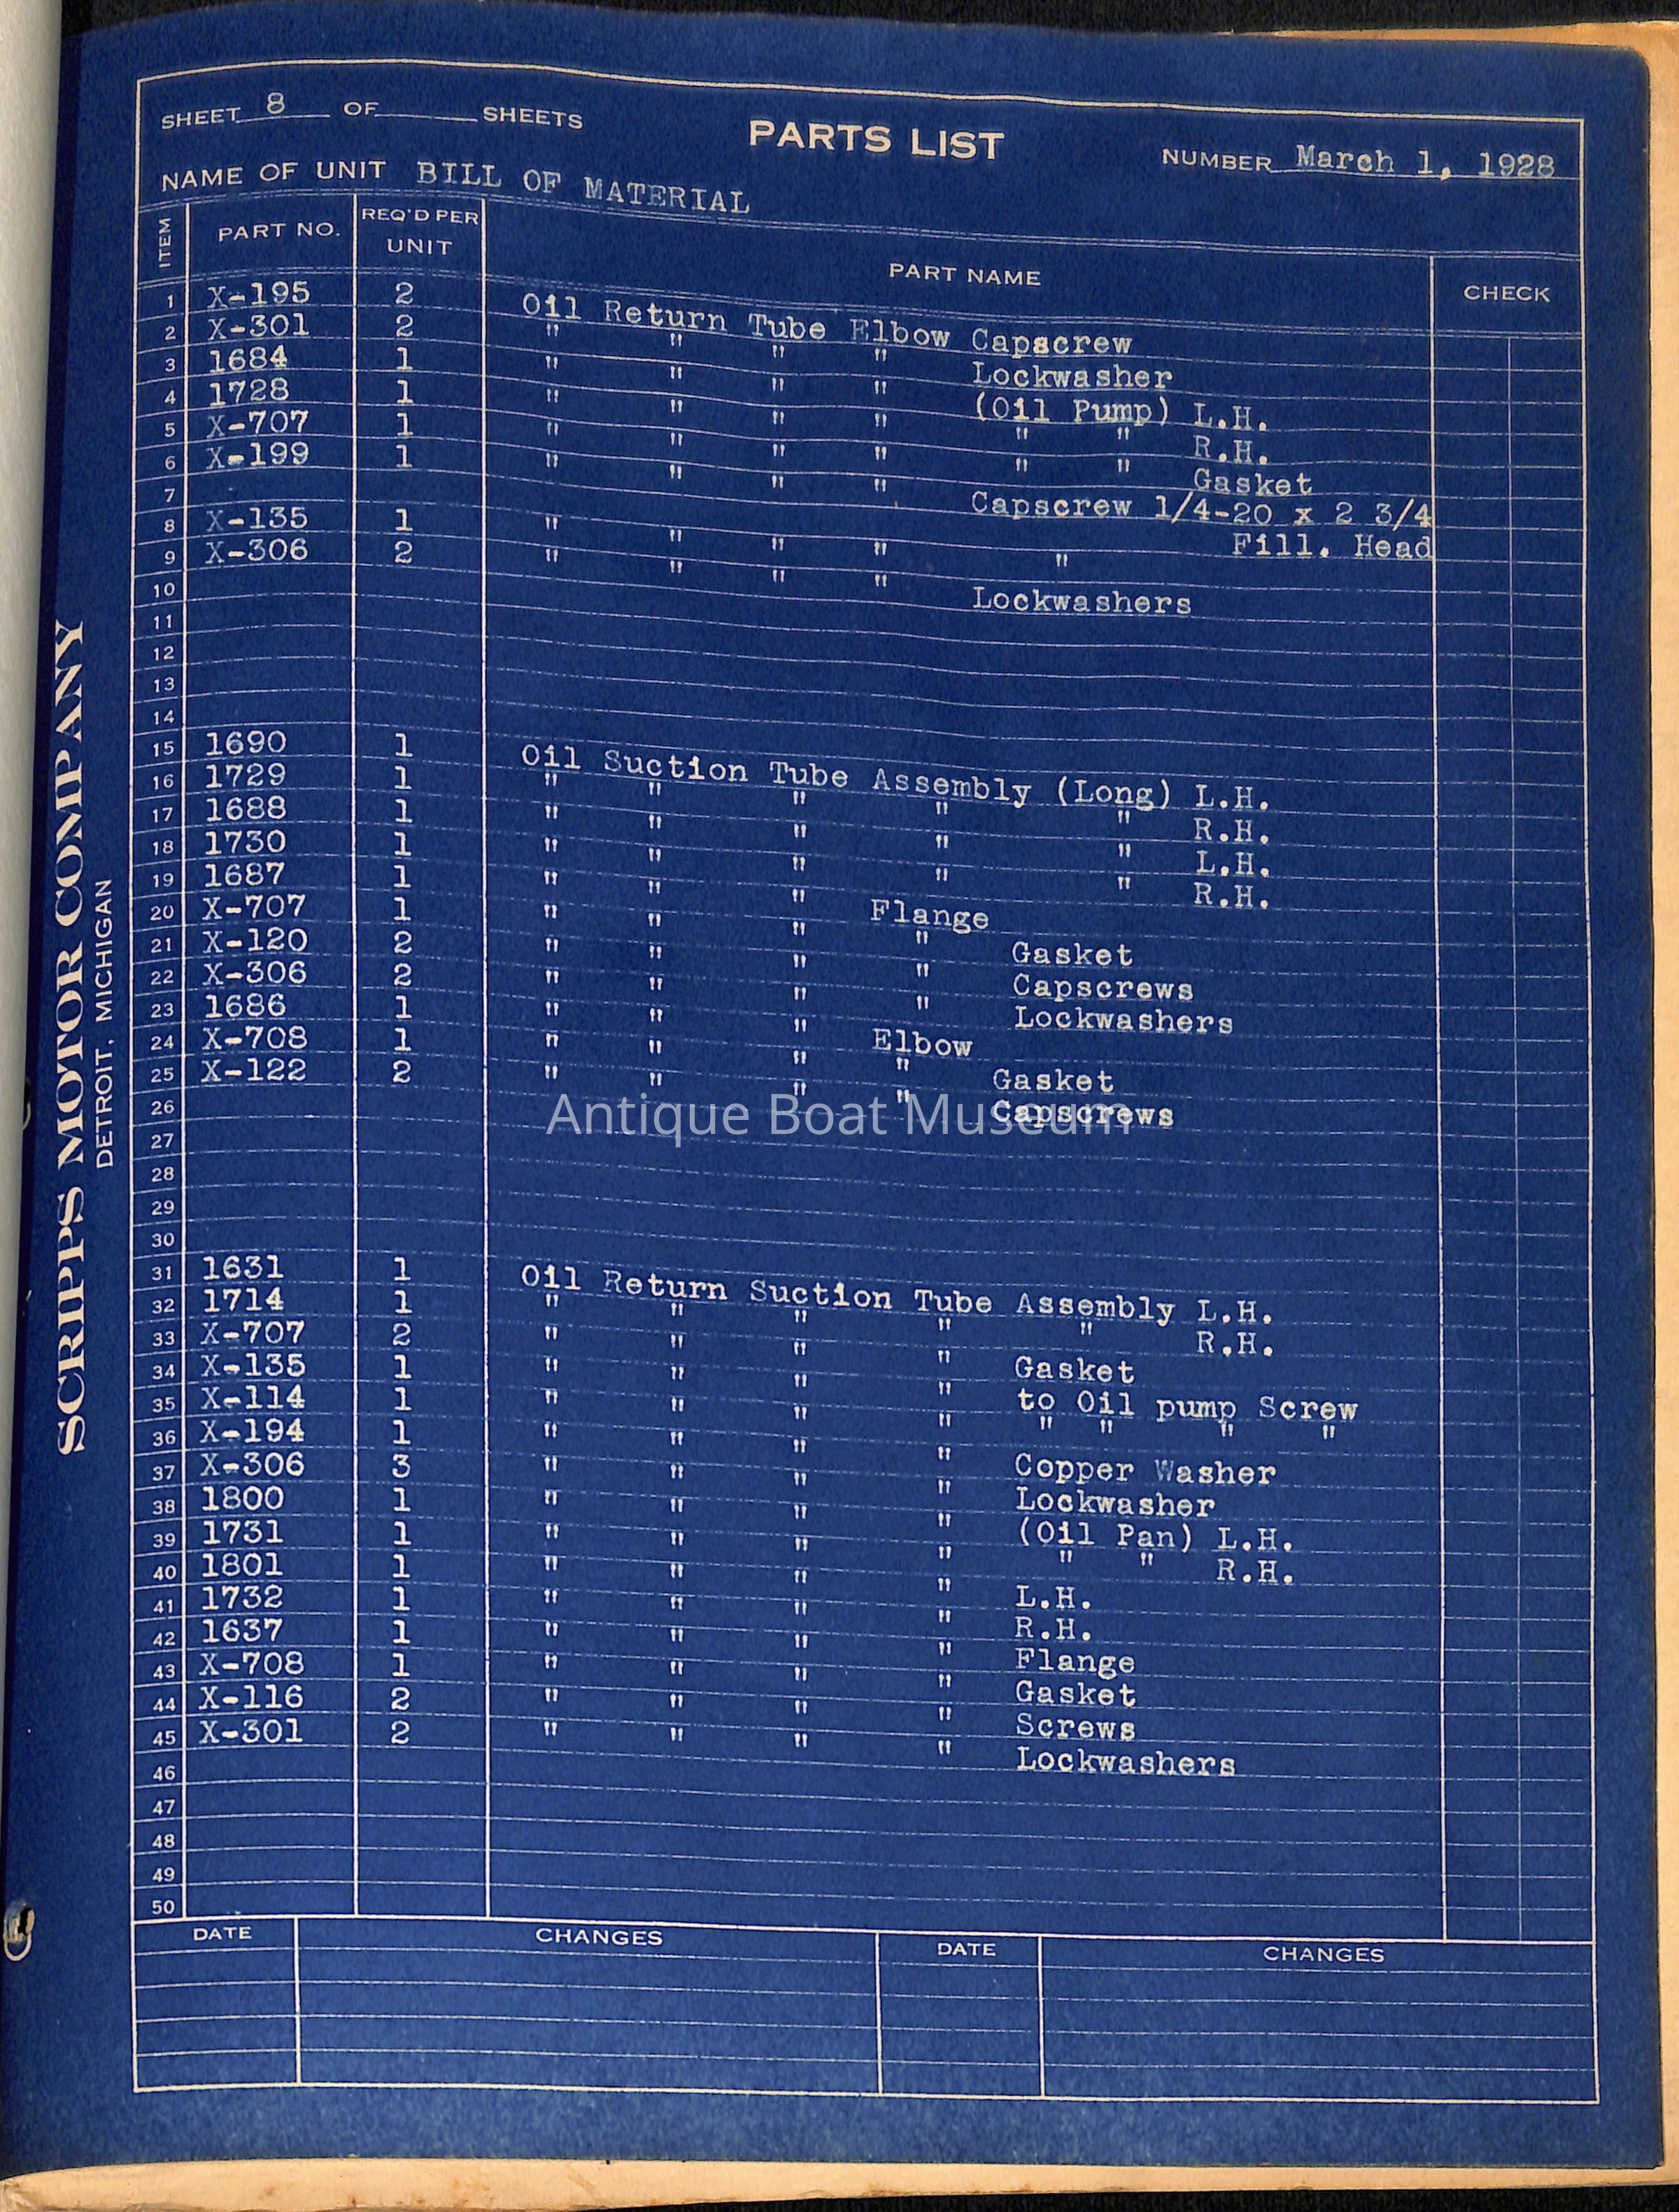 SHEET 8 OF SHEETS
PARTS LIST
NUMBER March 1, 1928
NAME OF UNIT BILL OF MATERIAL
ITEM PART NO. REQ'D PER UNIT PART NAME CHECK
1 X-195 2 Oil Return Tube Elbow Capscrew
2 X-301 2 " " " " Lockwasher
3 1684 1 " " " " (Oil Pump) L.H.
4 1728 1 " " " " " " R.H.
5 X-707 1 " " " " " " Gasket
6 X-199 1 " " " " Capscrew 1/4-20 x 2 3/4
7 Fill. Head
8 X-135 1 " " " " "
9 X-306 2 " " " " Lockwashers
10
11
12
13
14
15 1690 1 Oil Suction Tube Assembly (Long) L.H.
16 1729 1 " " " " " R.H.
17 1688 1 " " " " " L.H.
18 1730 1 " " " " " R.H.
19 1687 1 " " " Flange
20 X-707 1 " " " " Gasket
21 X-120 2 " " " " Capscrews
22 X-306 2 " " " " Lockwashers
23 1686 1 " " " Elbow
24 X-708 1 " " " " Gasket
25 X-122 2 " " " " Capscrews
26
27
28
29
30
31 1631 1 Oil Return Suction Tube Assembly L.H.
32 1714 1 " " " " " R.H.
33 X-707 2 " " " " Gasket
34 X-135 1 " " " " to Oil pump Screw
35 X-114 1 " " " " " " " "
36 X-194 1 " " " " Copper Washer
37 X-306 3 " " " " Lockwasher
38 1800 1 " " " " (Oil Pan) L.H.
39 1731 1 " " " " " " R.H.
40 1801 1 " " " " L.H.
41 1732 1 " " " " R.H.
42 1637 1 " " " " Flange
43 X-708 1 " " " " Gasket
44 X-116 2 " " " " Screws
45 X-301 2 " " " " Lockwashers
46
47
48
49
50
DATE CHANGES DATE CHANGES
SCRIPPS MOTOR COMPANY
DETROIT, MICHIGAN
Antique Boat Museum